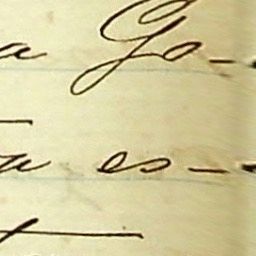 a Go-
a es-